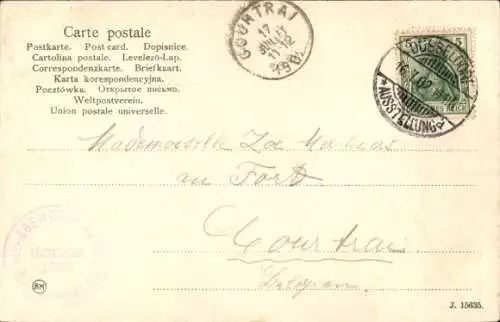 Carte postale
Postkarte. Post card. Dopisnice.
Cartolina postale. Levelező-Lap.
Correspondenzkarte. Briefkaart.
Karta korespondencyjna.
Pocztówka. Открытое письмо.
Weltpostverein.
Union postale universelle.
COURTRAI
17
JUIL
11-12
190
5
DÜSSELDORF
16.7.02
*AUSSTELLUNG*
REICH
Mademoiselle
au Fort
Courtrai
Belgien
RM
J. 15635.